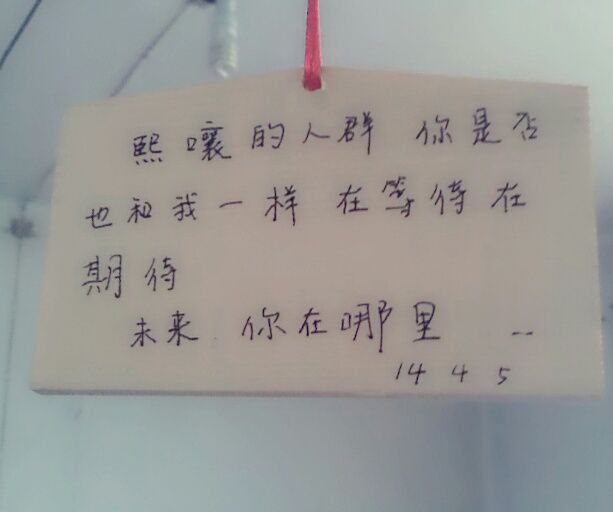 熙嚷的人群 你是否
也和我一样 在等待在
期待
未来 你在哪里 ..
14 4 5